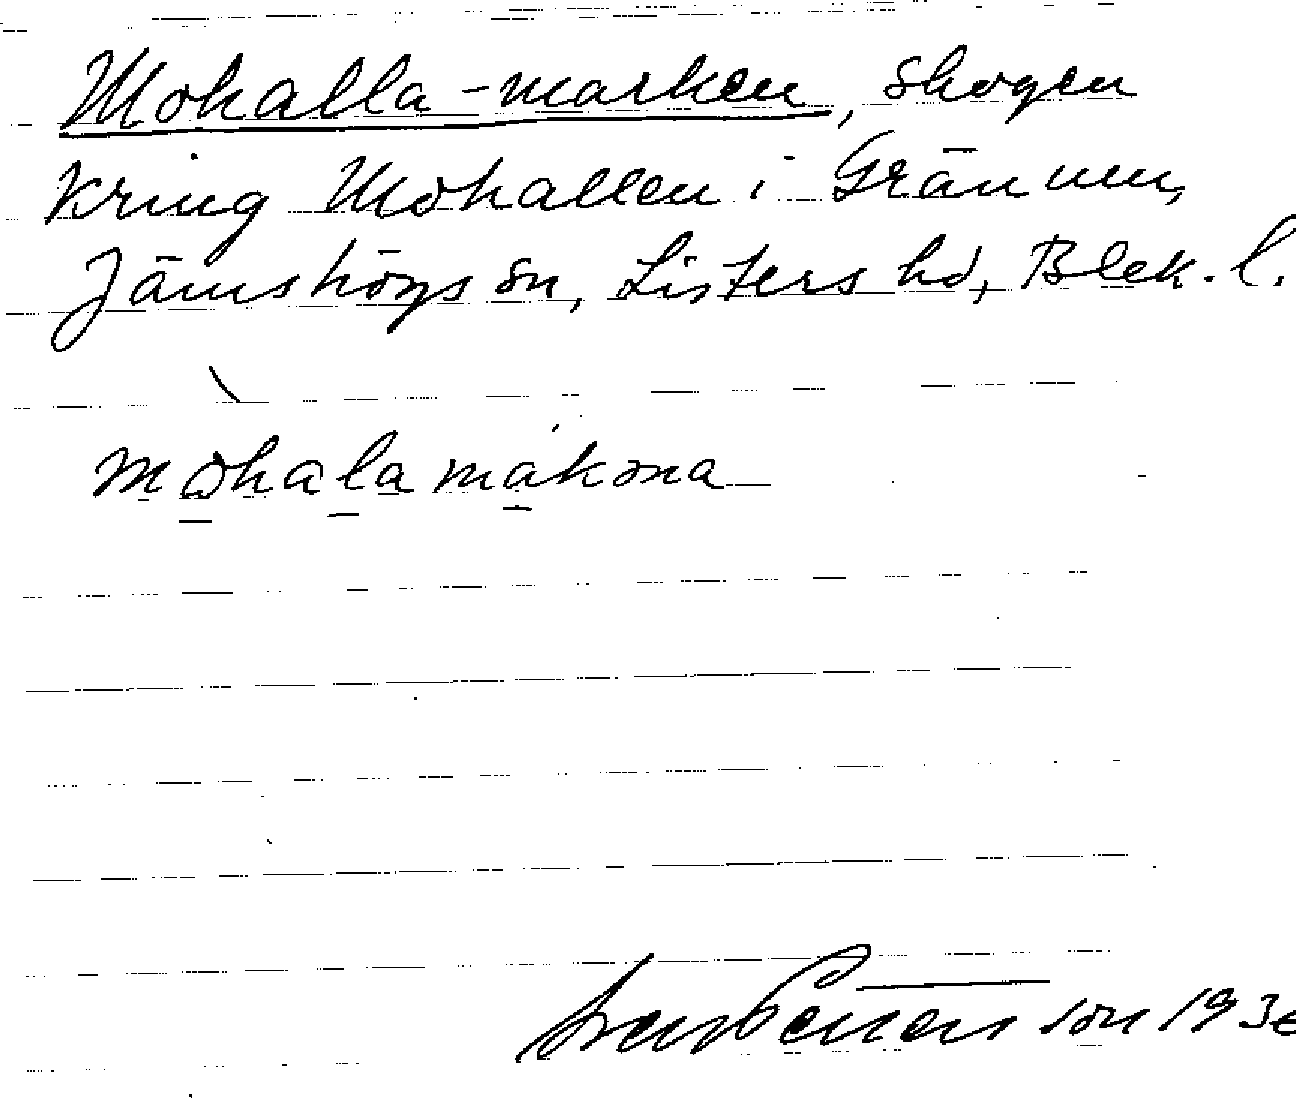 Mohalla-marken, skogen
kring Mohallen i Grännum,
Jämshögs sn, Listers hd, Blek. l.
mohala makəna
Sven Benson 193